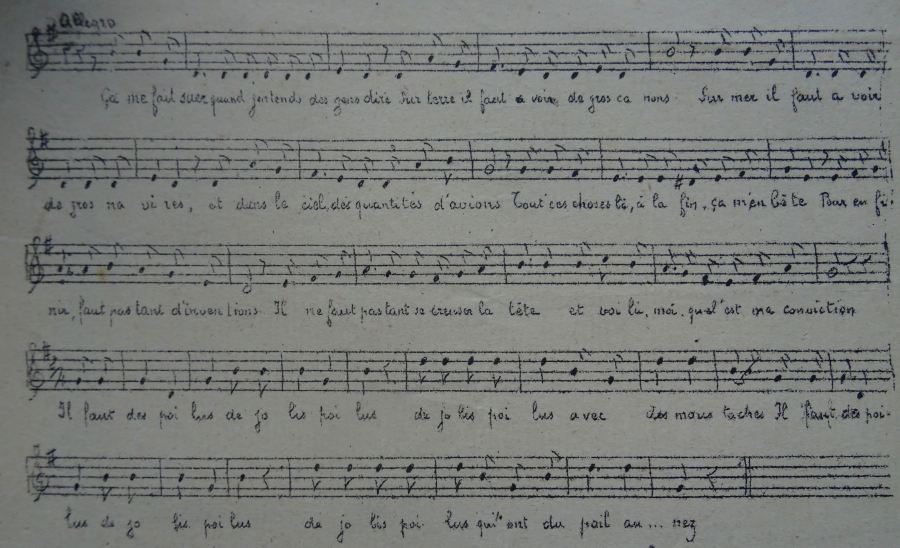 Allegro
Ça me fait suer quand j'entends des gens dire Sur terre il faut a voir de gros ca nons Sur mer il faut a voir
de gros na vi res, et dans le ciel, des quantités d'avions Tout ces choses là, à la fin, ça m'en bête Pour en fi-
nir, faut pas tant d'inven tions. Il ne faut pas tant se creuser la tête et voi là, moi, quel'est ma conviction
Il faut des poi lus de jo lis poi lus de jo lis poi lus avec des mous taches Il faut des poi-
lus de jo lis poi lus de jo lis poi lus qui ont du poil au... nez